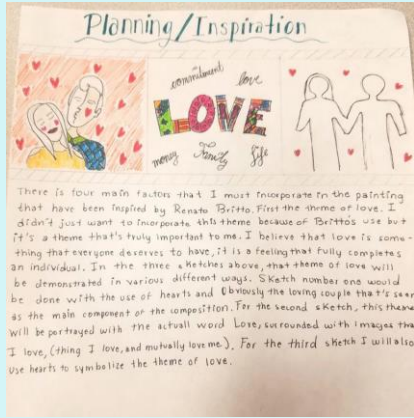 Planning/Inspiration
commitment love
LOVE
money Family life
There is four main factors that I must incorporate in the painting
that have been inspired by Renato Britto. First the theme of love. I
didn't just want to incorporate this theme because of Britto's use but
it's a theme that's truly important to me. I believe that love is some-
thing that everyone deserves to have, it is a feeling that fully completes
an individual. In the three sketches above, that theme of love will
be demonstrated in various different ways. Sketch number one would
be done with the use of hearts and obviously the loving couple that's seen
as the main component of the composition. For the second sketch, this theme
will be portrayed with the actuall word Love, surrounded with images tha
I love, (thing I love, and mutually love me.). For the third sketch I will also
use hearts to symbolize the theme of love.